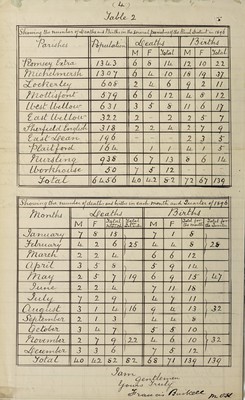 (4)
Table 2
Showing the number of Deaths and Births in the several Parishes of the Rural District in 1896
Parishes Population Deaths Births
M F Total M F Total
Romsey Extra 1343 6 8 14 12 10 22
Michelmersh 1307 6 4 10 18 19 37
Lockerley 608 2 4 6 9 2 11
Mottisfont 579 6 6 12 4 8 12
West Wellow 631 3 5 8 11 6 17
East Wellow 322 2 - 2 2 5 7
Sherfield English 318 2 2 4 2 7 9
East Dean 196 - - - 2 3 5
Plaitford 164 - 1 1 4 1 5
Nursling 938 6 7 13 8 6 14
Workhouse 50 7 5 12
Total 6456 40 42 82 72 67 139
Showing the number of deaths and births in each month and Quarter of 1896
Months Deaths Births
January 7 8 15 7 1 8
February 4 2 6 25 4 4 8 28
March 2 2 4 6 6 12
April 3 5 8 5 9 14
May 2 5 7 19 6 9 15 47
June 2 2 4 7 11 18
July 7 2 9 4 7 11
August 3 1 4 16 9 4 13 32
September 2 1 3 4 4 8
October 3 4 7 5 5 10
November 2 7 9 22 4 6 10 32
December 3 3 6 7 5 12
Total 40 42 82 82 68 71 139 139
I am
Gentlemen
Yours truly
Francis Buckell
M.O.H.